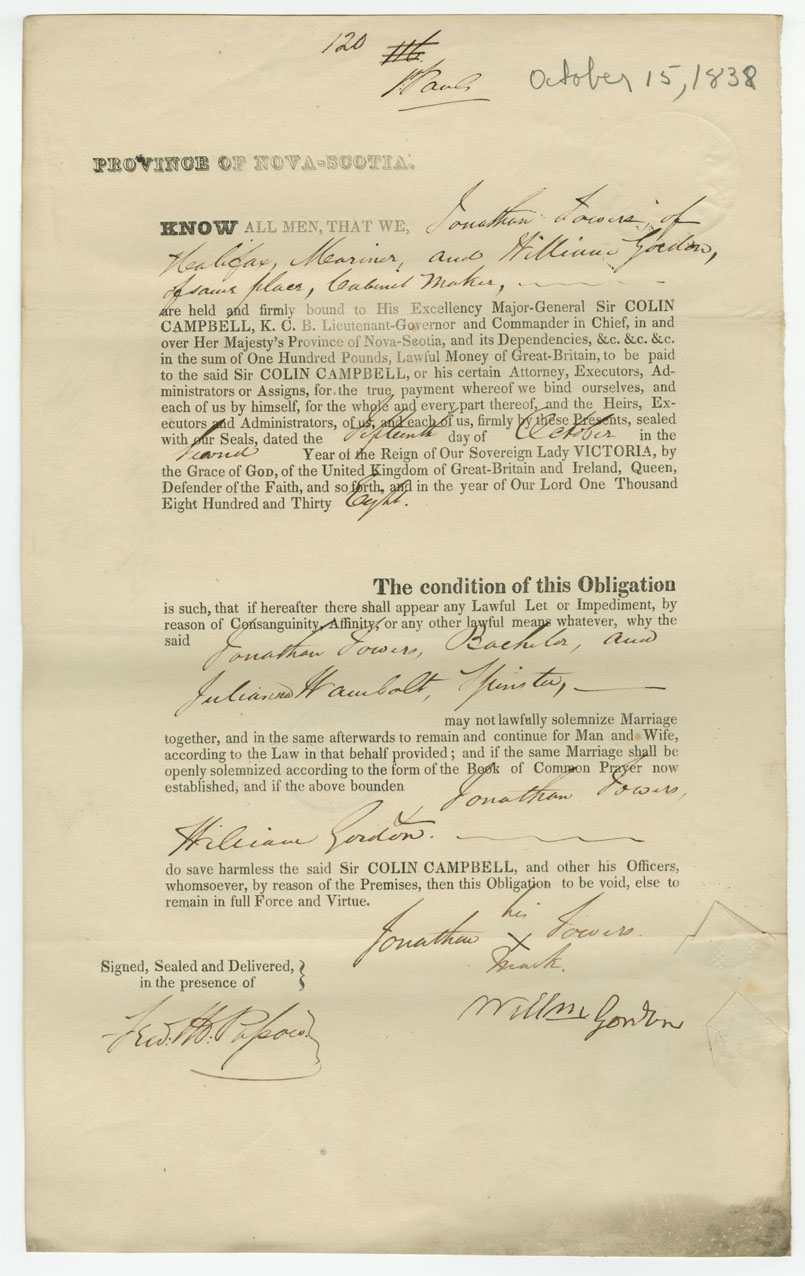 120 116
St Pauls
October 15, 1838
PROVINCE OF NOVA-SCOTIA.
KNOW ALL MEN, THAT WE, Jonathan Towers, of
Halifax, Mariner, and William Gordon,
of same place, Cabinet Maker,
are held and firmly bound to His Excellency Major-General Sir COLIN
CAMPBELL, K. C. B. Lieutenant-Governor and Commander in Chief, in and
over Her Majesty's Province of Nova-Scotia, and its Dependencies, &c. &c. &c.
in the sum of One Hundred Pounds, Lawful Money of Great-Britain, to be paid
to the said Sir COLIN CAMPBELL, or his certain Attorney, Executors, Ad-
ministrators or Assigns, for the true payment whereof we bind ourselves, and
each of us by himself, for the whole and every part thereof, and the Heirs, Ex-
ecutors and Administrators, of us, and each of us, firmly by these Presents, sealed
with our Seals, dated the Fifteenth day of October in the
Second Year of the Reign of Our Sovereign Lady VICTORIA, by
the Grace of GOD, of the United Kingdom of Great-Britain and Ireland, Queen,
Defender of the Faith, and so forth, and in the year of Our Lord One Thousand
Eight Hundred and Thirty Eight.
The condition of this Obligation
is such, that if hereafter there shall appear any Lawful Let or Impediment, by
reason of Consanguinity, Affinity, or any other lawful means whatever, why the
said Jonathan Towers, Bachelor, and
Juliana Hambolt, Spinster,
may not lawfully solemnize Marriage
together, and in the same afterwards to remain and continue for Man and Wife,
according to the Law in that behalf provided; and if the same Marriage shall be
openly solemnized according to the form of the Book of Common Prayer now
established, and if the above bounden Jonathan Towers,
William Gordon.
do save harmless the said Sir COLIN CAMPBELL, and other his Officers,
whomsoever, by reason of the Premises, then this Obligation to be void, else to
remain in full Force and Virtue.
his
Jonathan X Towers.
mark.
Signed, Sealed and Delivered, }
in the presence of
Willm Gordon